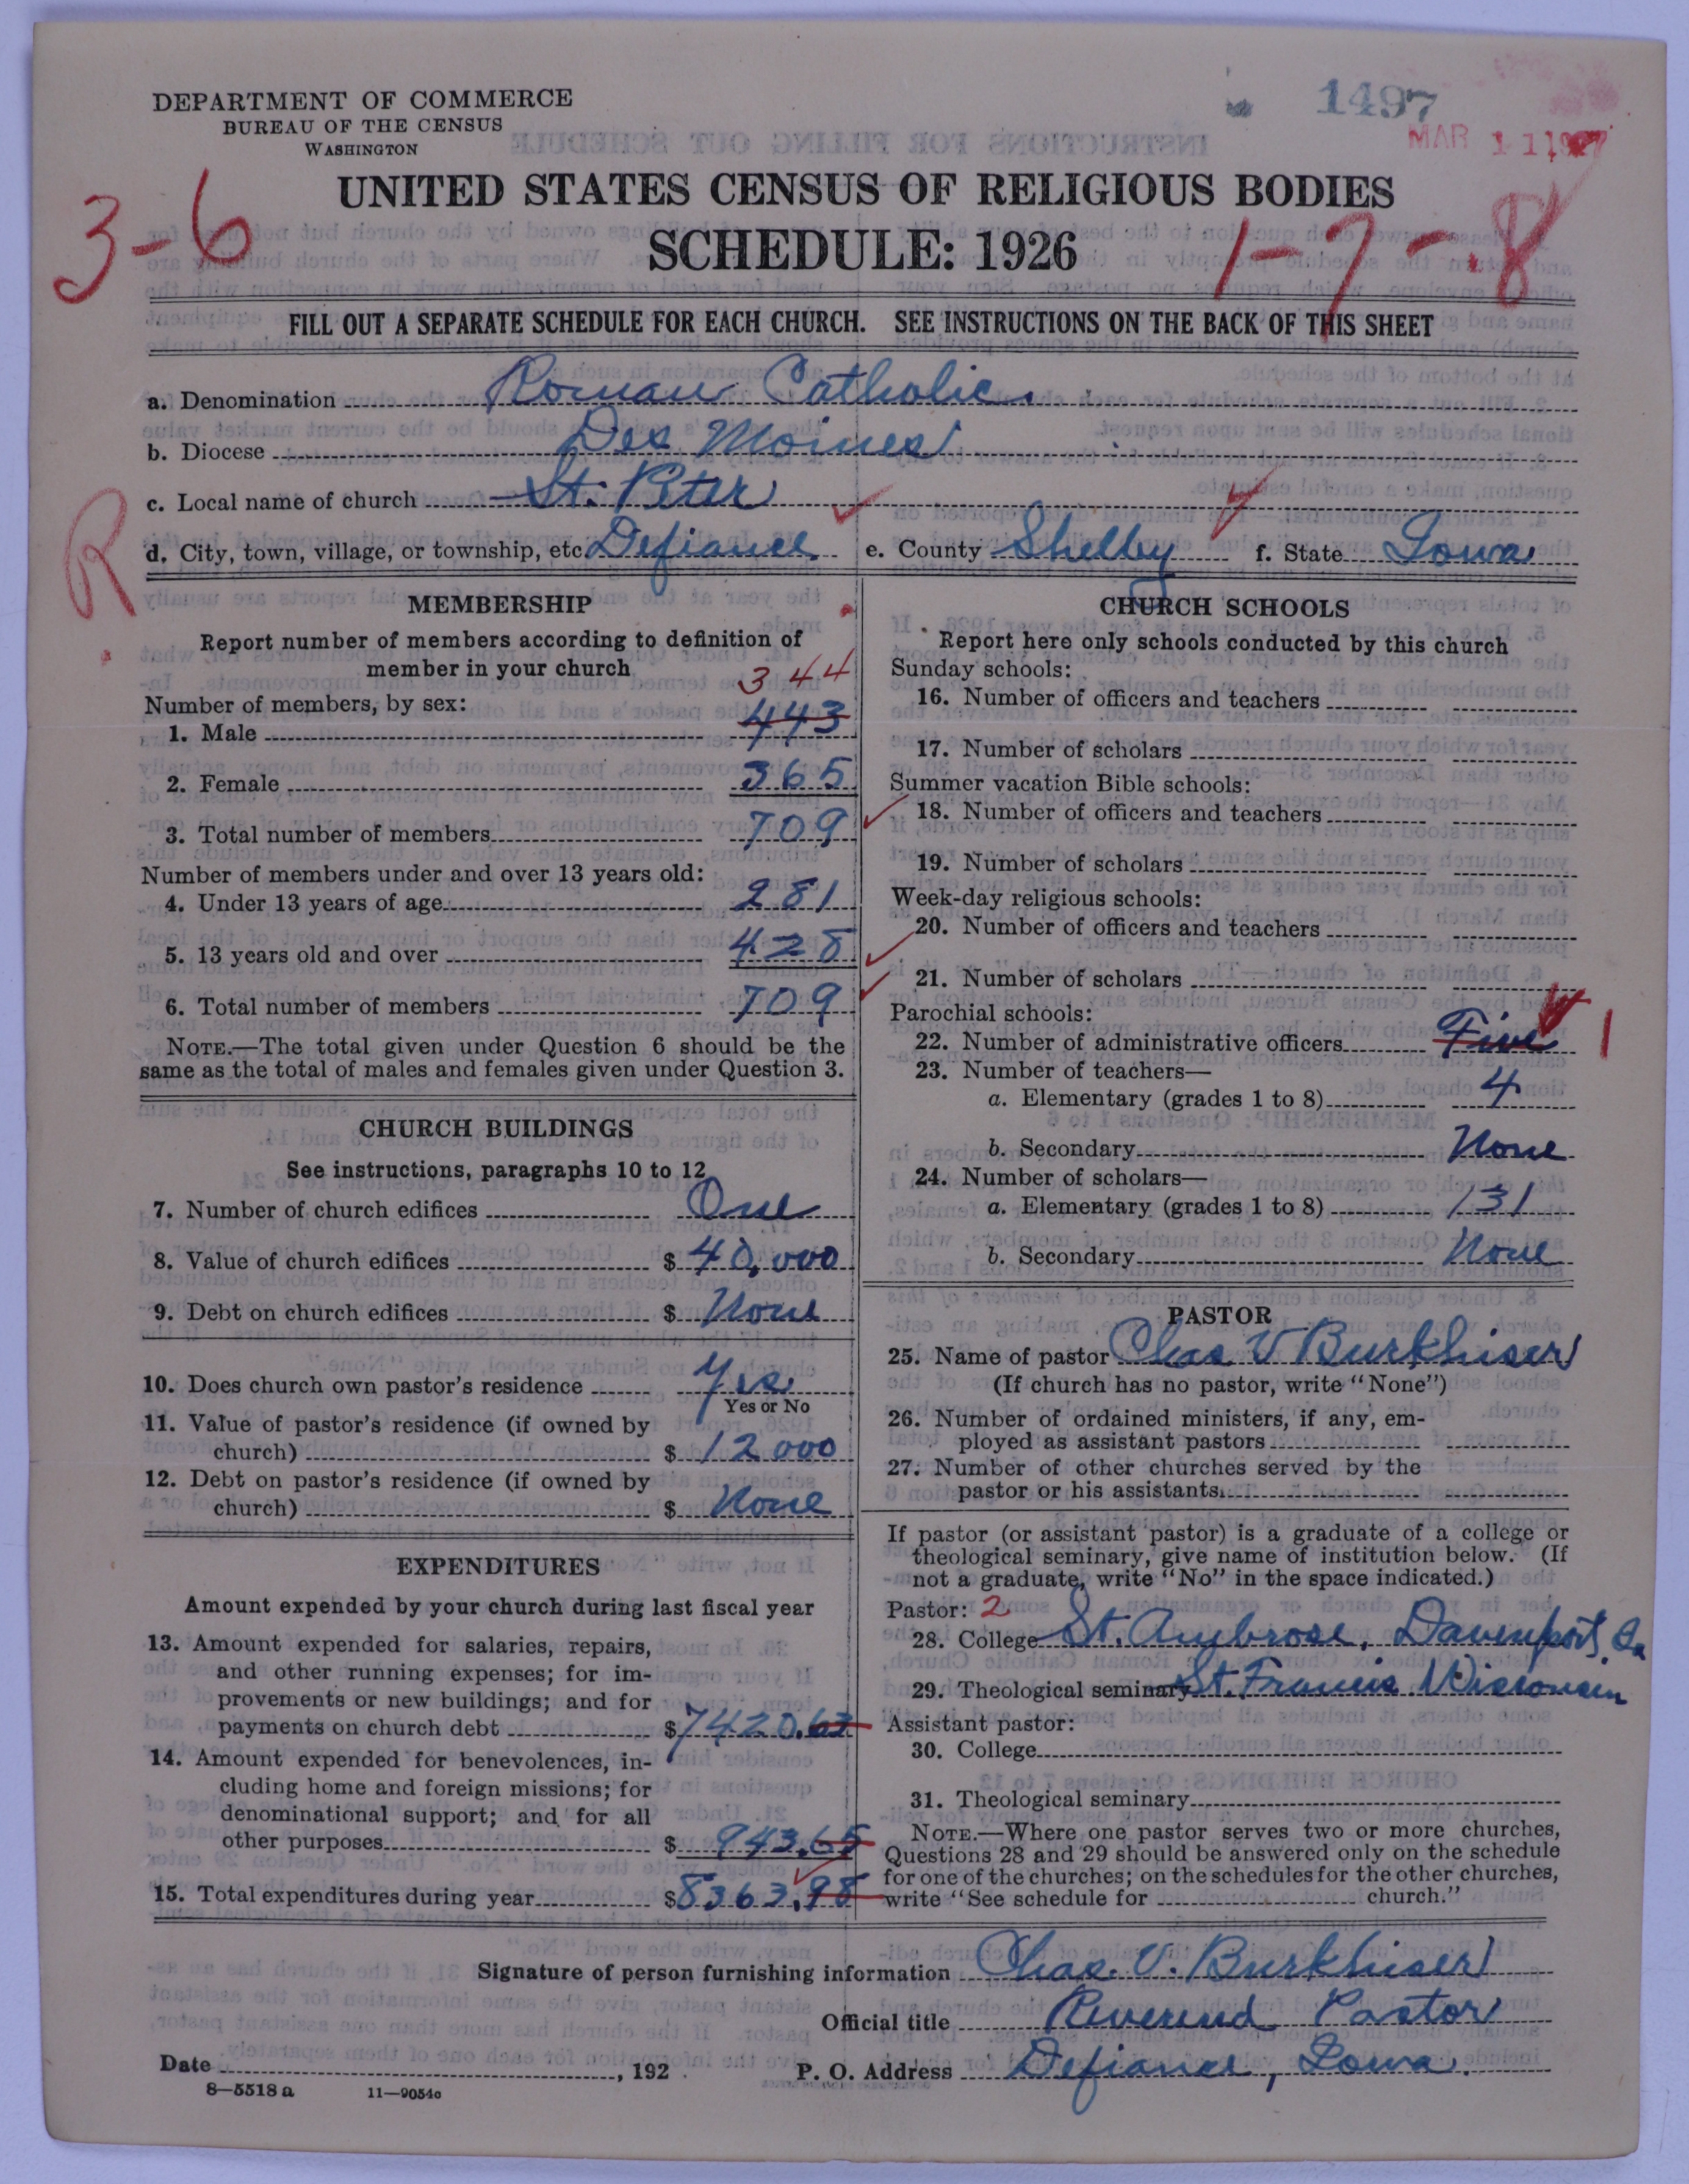 DEPARTMENT OF COMMERCE
BUREAU OF THE CENSUS
WASHINGTON
1497
MAR 11 1927
UNITED STATES CENSUS OF RELIGIOUS BODIES
SCHEDULE: 1926
3-6
1-7-8
FILL OUT A SEPARATE SCHEDULE FOR EACH CHURCH. SEE INSTRUCTIONS ON THE BACK OF THIS SHEET
a. Denomination Roman Catholic.
b. Diocese Des Moines
c. Local name of church St. Peter
R
d. City, town, village, or township, etc. Defiance e. County Shelby f. State Iowa
MEMBERSHIP
Report number of members according to definition of
member in your church
344
Number of members, by sex:
1. Male 443
2. Female 365
3. Total number of members 709
Number of members under and over 13 years old:
4. Under 13 years of age 281
5. 13 years old and over 428
6. Total number of members 709
NOTE.—The total given under Question 6 should be the
same as the total of males and females given under Question 3.
CHURCH BUILDINGS
See instructions, paragraphs 10 to 12
7. Number of church edifices One
8. Value of church edifices $ 40,000
9. Debt on church edifices $ None
10. Does church own pastor's residence Yes
Yes or No
11. Value of pastor's residence (if owned by
church) $ 12000
12. Debt on pastor's residence (if owned by
church) $ None
EXPENDITURES
Amount expended by your church during last fiscal year
13. Amount expended for salaries, repairs,
and other running expenses; for im-
provements or new buildings; and for
payments on church debt $ 7420.63
14. Amount expended for benevolences, in-
cluding home and foreign missions; for
denominational support; and for all
other purposes $ 943.65
15. Total expenditures during year $ 8363.98
CHURCH SCHOOLS
Report here only schools conducted by this church
Sunday schools:
16. Number of officers and teachers
17. Number of scholars
Summer vacation Bible schools:
18. Number of officers and teachers
19. Number of scholars
Week-day religious schools:
20. Number of officers and teachers
21. Number of scholars
Parochial schools:
22. Number of administrative officers Five 1
23. Number of teachers—
a. Elementary (grades 1 to 8) 4
b. Secondary None
24. Number of scholars—
a. Elementary (grades 1 to 8) 131
b. Secondary None
PASTOR
25. Name of pastor Chas V Burkhiser
(If church has no pastor, write "None")
26. Number of ordained ministers, if any, em-
ployed as assistant pastors
27. Number of other churches served by the
pastor or his assistants
If pastor (or assistant pastor) is a graduate of a college or
theological seminary, give name of institution below. (If
not a graduate, write "No" in the space indicated.)
Pastor: 2
28. College St. Ambrose, Davenport, Ia
29. Theological seminary St. Francis Wisconsin
Assistant pastor:
30. College
31. Theological seminary
NOTE.—Where one pastor serves two or more churches,
Questions 28 and 29 should be answered only on the schedule
for one of the churches; on the schedules for the other churches,
write "See schedule for church."
Signature of person furnishing information Chas. V. Burkhiser
Official title Reverend Pastor
Date , 192 P. O. Address Defiance, Iowa.
8—5518 a 11—9054c